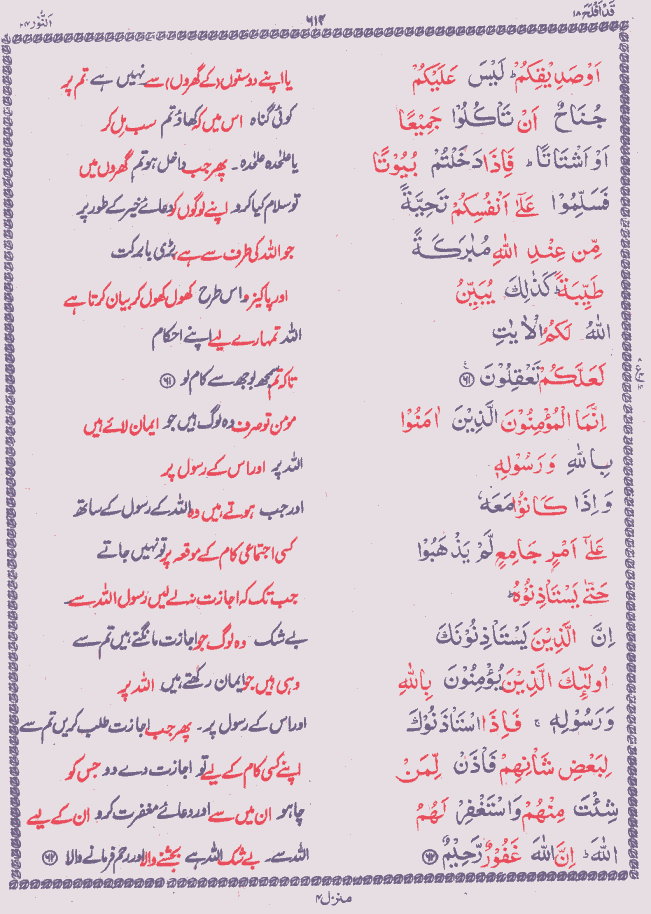 قَدْ اَفْلَحَ ۱۸
۶۱۲
اَلنُّوْر ۲۴
اَوْ صَدِیْقِكُمْ ؕ لَیْسَ عَلَیْكُمْ یا اپنے دوستوں (کے گھروں) سے نہیں ہے تم پر
جُنَاحٌ اَنْ تَاْكُلُوْا جَمِیْعًا کوئی گناہ اس میں کہ کھاؤ تم سب مل کر
اَوْ اَشْتَاتًا ؕ فَاِذَا دَخَلْتُمْ بُیُوْتًا یا علٰحدہ علٰحدہ ۔ پھر جب داخل ہو تم گھروں میں
فَسَلِّمُوْا عَلٰۤی اَنْفُسِكُمْ تَحِیَّةً تو سلام کیا کرو اپنے لوگوں کو دعائے خیر کے طور پر
مِّنْ عِنْدِ اللّٰهِ مُبٰرَكَةً جو اللہ کی طرف سے ہے بڑی بابرکت
طَیِّبَةً ؕ كَذٰلِكَ یُبَیِّنُ اور پاکیزہ اس طرح کھول کھول کر بیان کرتا ہے
اللّٰهُ لَكُمُ الْاٰیٰتِ اللہ تمہارے لیے اپنے احکام
لَعَلَّكُمْ تَعْقِلُوْنَ ۶۱ تاکہ تم سمجھ بوجھ سے کام لو ۶۱
اِنَّمَا الْمُؤْمِنُوْنَ الَّذِیْنَ اٰمَنُوْا مومن تو صرف وہ لوگ ہیں جو ایمان لائے ہیں
بِاللّٰهِ وَرَسُوْلِهٖ اللہ پر اور اس کے رسول پر
وَاِذَا كَانُوْا مَعَهٗ اور جب ہوتے ہیں وہ اللہ کے رسول کے ساتھ
عَلٰۤی اَمْرٍ جَامِعٍ لَّمْ یَذْهَبُوْا کسی اجتماعی کام کے موقعہ پر تو نہیں جاتے
حَتّٰی یَسْتَاْذِنُوْهُ ؕ جب تک کہ اجازت نہ لے لیں رسول اللہ سے
اِنَّ الَّذِیْنَ یَسْتَاْذِنُوْنَكَ بے شک وہ لوگ جو اجازت مانگتے ہیں تم سے
اُولٰٓئِكَ الَّذِیْنَ یُؤْمِنُوْنَ بِاللّٰهِ وہی ہیں جو ایمان رکھتے ہیں اللہ پر
وَرَسُوْلِهٖ ۚ فَاِذَا اسْتَاْذَنُوْكَ اور اس کے رسول پر ۔ پھر جب اجازت طلب کریں تم سے
لِبَعْضِ شَاْنِهِمْ فَاْذَنْ لِّمَنْ اپنے کسی کام کے لیے تو اجازت دے دو جس کو
شِئْتَ مِنْهُمْ وَاسْتَغْفِرْ لَهُمُ چاہو ان میں سے اور دعائے مغفرت کرو ان کے لیے
اللّٰهَ ؕ اِنَّ اللّٰهَ غَفُوْرٌ رَّحِیْمٌ ۶۲ اللہ سے ۔ بے شک اللہ ہے بخشنے والا اور رحم فرمانے والا ۶۲
منزل ۴